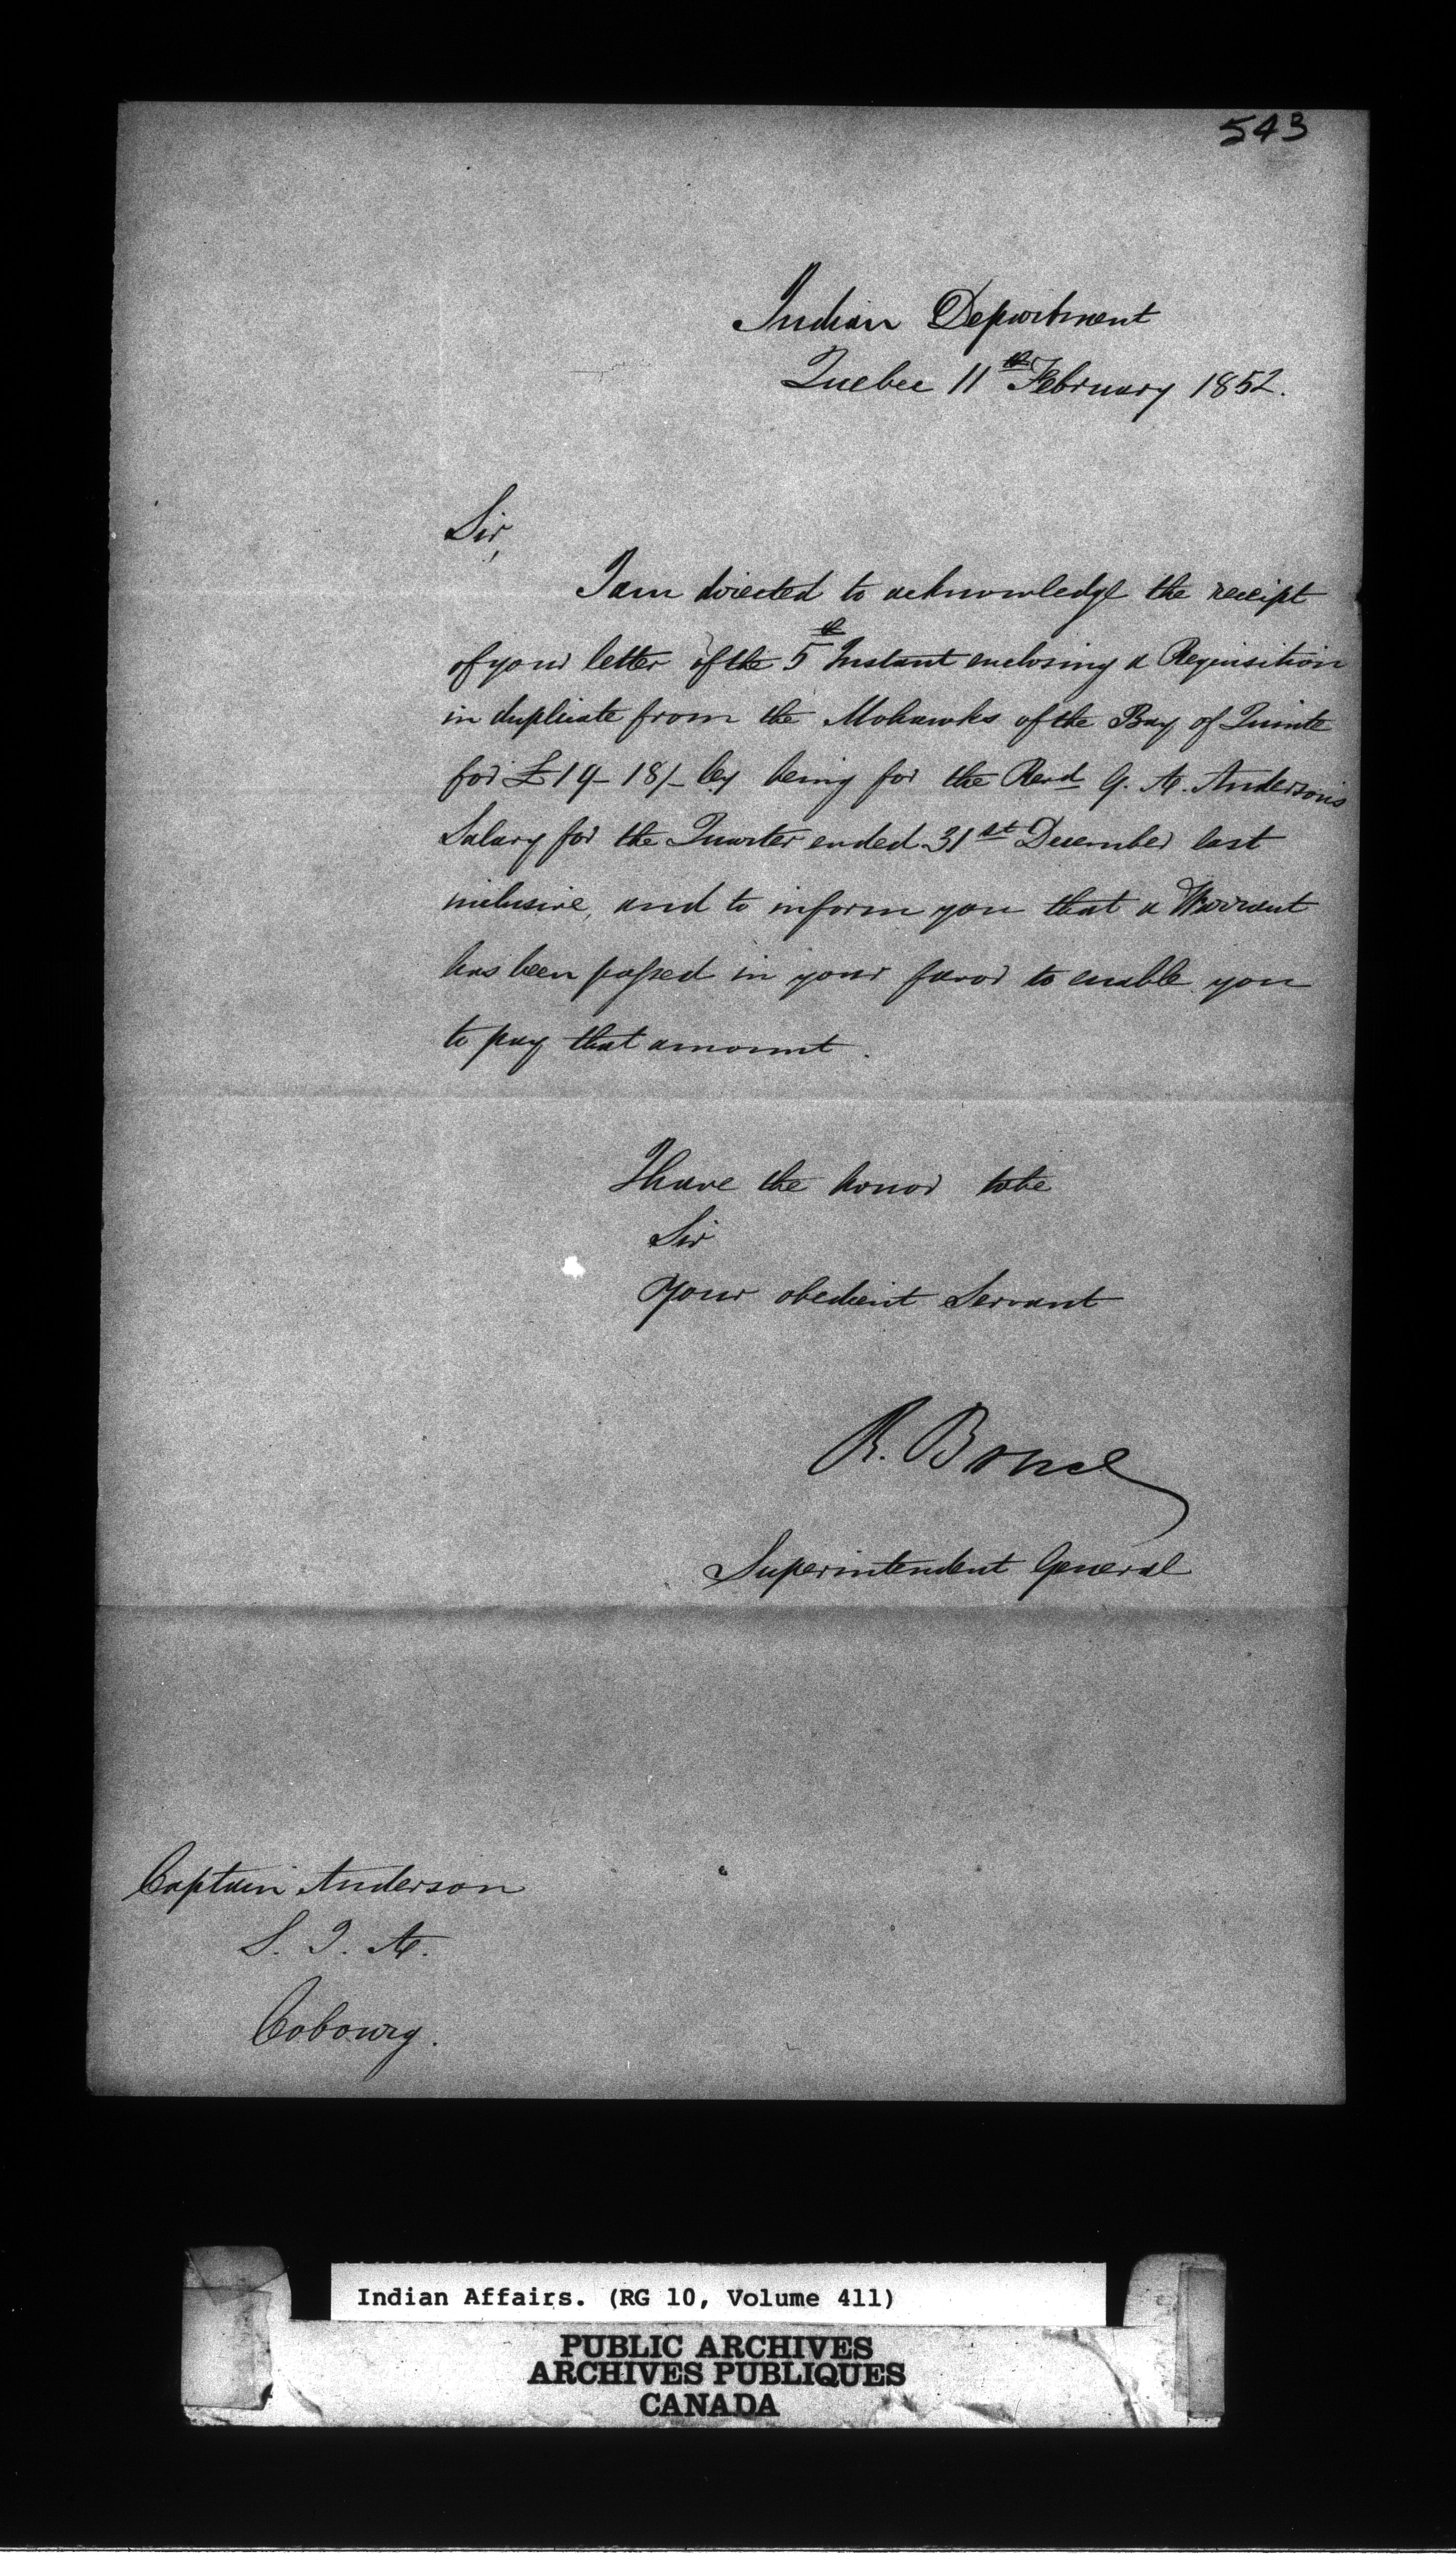 543
Indian Department
Quebec 11th February 1852.
Sir,
I am directed to acknowledge the receipt
of your letter of the 5th Instant enclosing a Requisition
in duplicate from the Mohawks of the Bay of Quinte
for £14-18/- Cy being for the Revd G. A. Anderson's
Salary for the Quarter ended 31st December last
inclusive, and to inform you that a Warrant
has been passed in your favor to enable you
to pay that amount.
I have the honor to be
Sir
Your obedient Servant
R. Bruce
Superintendent General
Captain Anderson
S. I. A.
Cobourg.
Indian Affairs. (RG 10, Volume 411)
PUBLIC ARCHIVES
ARCHIVES PUBLIQUES
CANADA